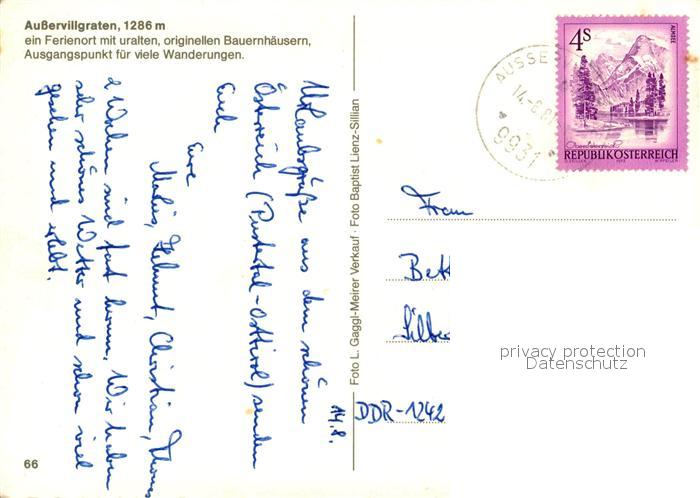 Außervillgraten, 1286 m
ein Ferienort mit uralten, originellen Bauernhäusern,
Ausgangspunkt für viele Wanderungen.
14.8.
Urlaubsgrüße aus dem schönen
Österreich (Pustertal-Osttirol) senden
Euch
Eure
Helmut, Christian, Thomas
2 Wochen sind fast herum, Wir haben
sehr schönes Wetter und schon viel
gesehen und erlebt.
66
Foto L. Gaggl-Meirer Verkauf · Foto Baptist Lienz-Sillian
AUSSE
14.-8.8
9931
4S
ALMSEE
Oberösterreich
REPUBLIK ÖSTERREICH
Frau
Bett
Silbe
DDR-1242
privacy protection
Datenschutz